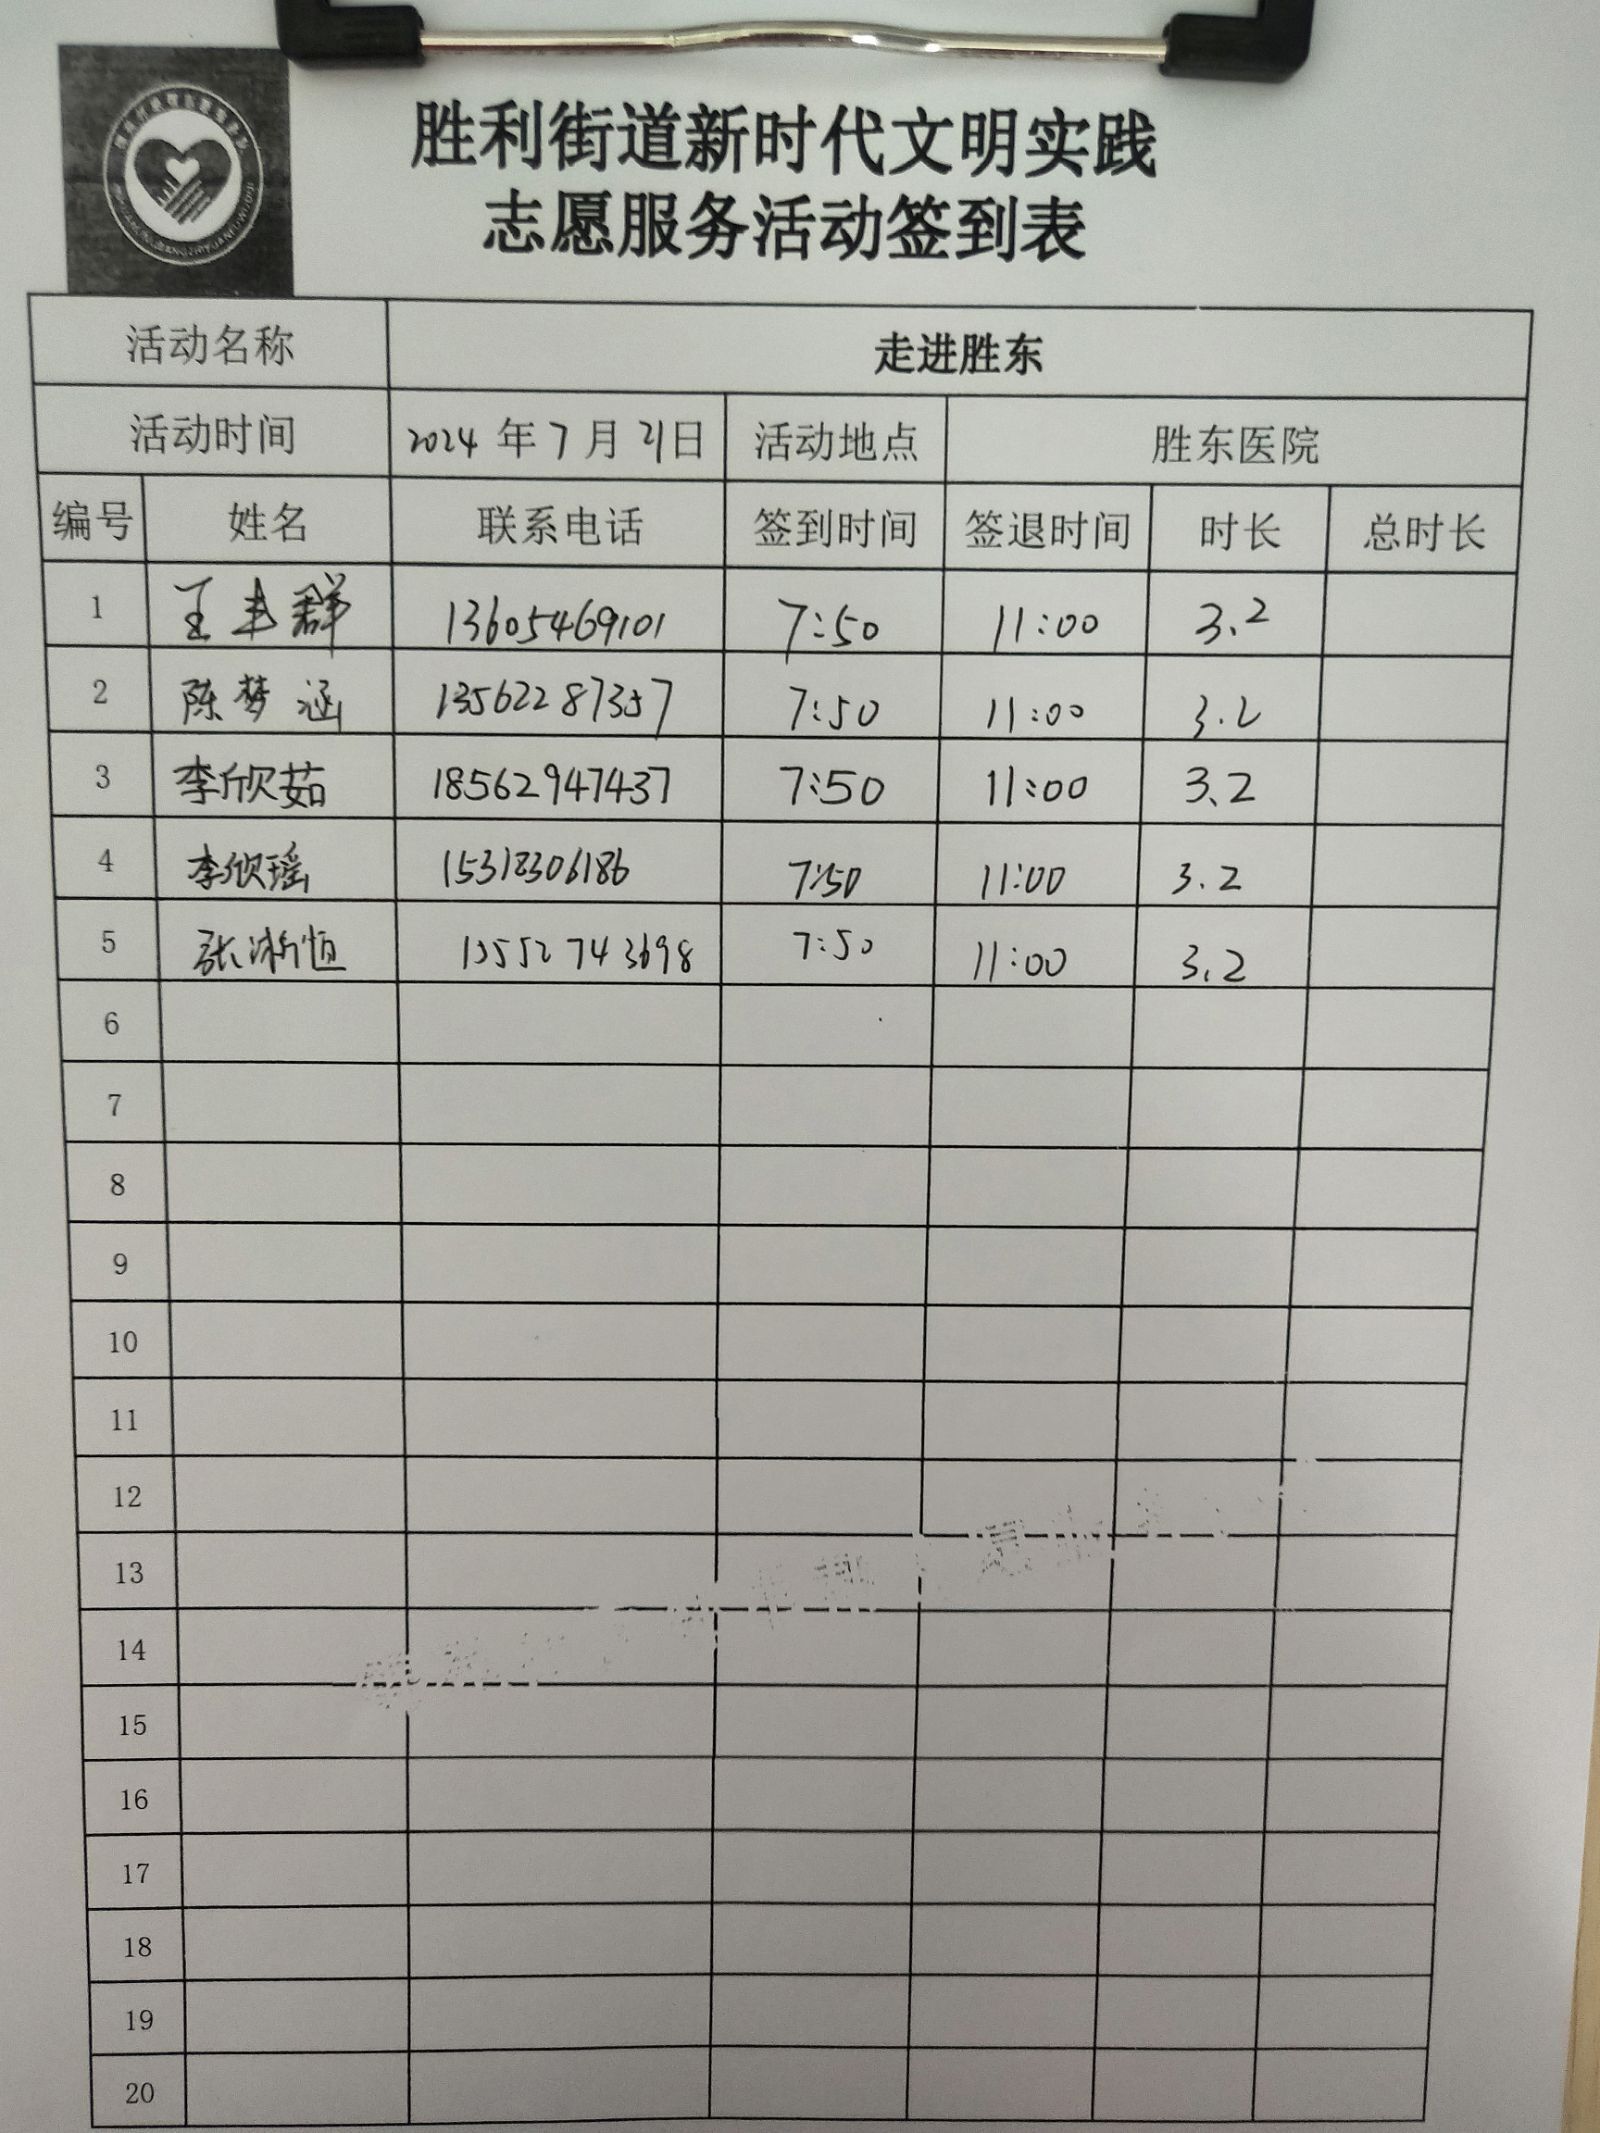 胜利街道新时代文明实践
志愿服务活动签到表
活动名称 走进胜东
活动时间 2024年7月21日 活动地点 胜东医院
编号 姓名 联系电话 签到时间 签退时间 时长 总时长
1 王丰群 13605469101 7:50 11:00 3.2
2 陈梦涵 13562287357 7:50 11:00 3.2
3 李欣茹 18562947437 7:50 11:00 3.2
4 李欣瑶 15318306186 7:50 11:00 3.2
5 张淅恒 13552743698 7:50 11:00 3.2
6
7
8
9
10
11
12
13
14
15
16
17
18
19
20